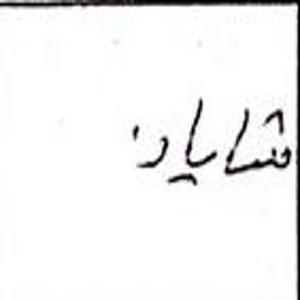 شایان